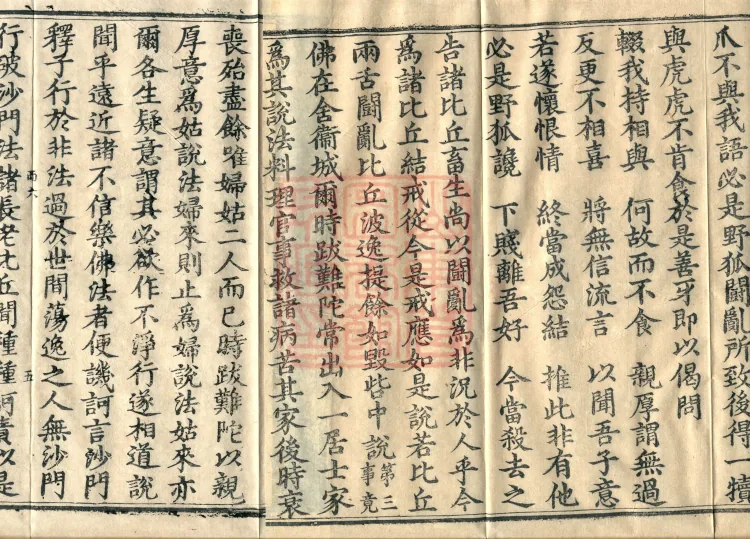 爪不與我語必是野狐鬪亂所致後得一犢
與虎虎不肯食於是善牙即以偈問
輟我持相與　何故而不食　親厚謂無過
反更不相喜　將無信流言　以聞吾子意
若遂懷恨情　終當成怨結　推此非有他
必是野狐讒　下賤離吾好　今當殺去之
告諸比丘畜生尚以鬪亂為非況於人乎今
為諸比丘結戒從今是戒應如是說若比丘
兩舌鬪亂比丘波逸提餘如毀呰中說第三事竟
佛在舍衞城爾時跋難陀常出入一居士家
為其說法料理官事救諸病苦其家後時衰
喪殆盡餘唯婦姑二人而已時跋難陀以親
厚意為姑說法婦來則止為婦說法姑來亦
爾各生疑意謂其必欲作不淨行遂相道說
聞乎遠近諸不信樂佛法者便譏訶言沙門
釋子行於非法過於世間蕩逸之人無沙門
行破沙門法諸長老比丘聞種種訶責以是
五